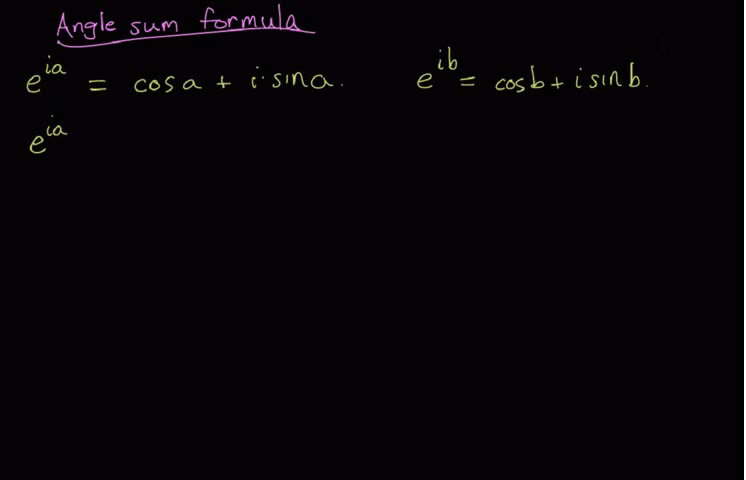 Angle sum formula
e^{ia} = cos a + i·sin a.    e^{ib} = cos b + i sin b.
e^{ia}